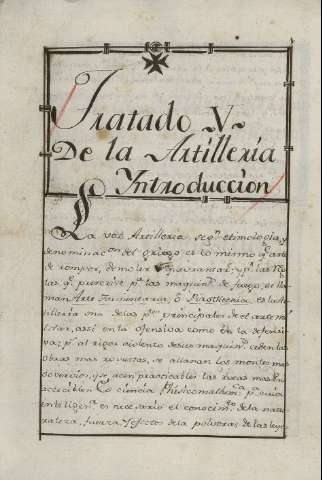 Tratado V
De la Artilleria
Yntroduccion
La voz Artilleria segⁿ etimologia, y
denominacⁿ del griego es lo mismo qᵉ arte
de romper, demoler y pʳ las
las qᵉ prescrive pᵃ las maquinˢ de fuego, se lla-
man Arte Tormentaria, ò Pirothecnia, es la Ar-
tilleria una de las pᵗᵉˢ principales de el arte mi-
litar, assi en la ofensiva como en la defensi-
va; pˢ al rigor violento de sus maquinˢ ceden las
obras mas robustas, se allanan los montes mas
y se acen practicables las rocas mas in-
accecibles. Es ciencia Phisicomathemᶜᵃ pᵃ cuia
inteligenᵃ es necesario el conocimᵗᵒ de la natu-
raleza, fuerza, y efectos de la polvora: de las leyes